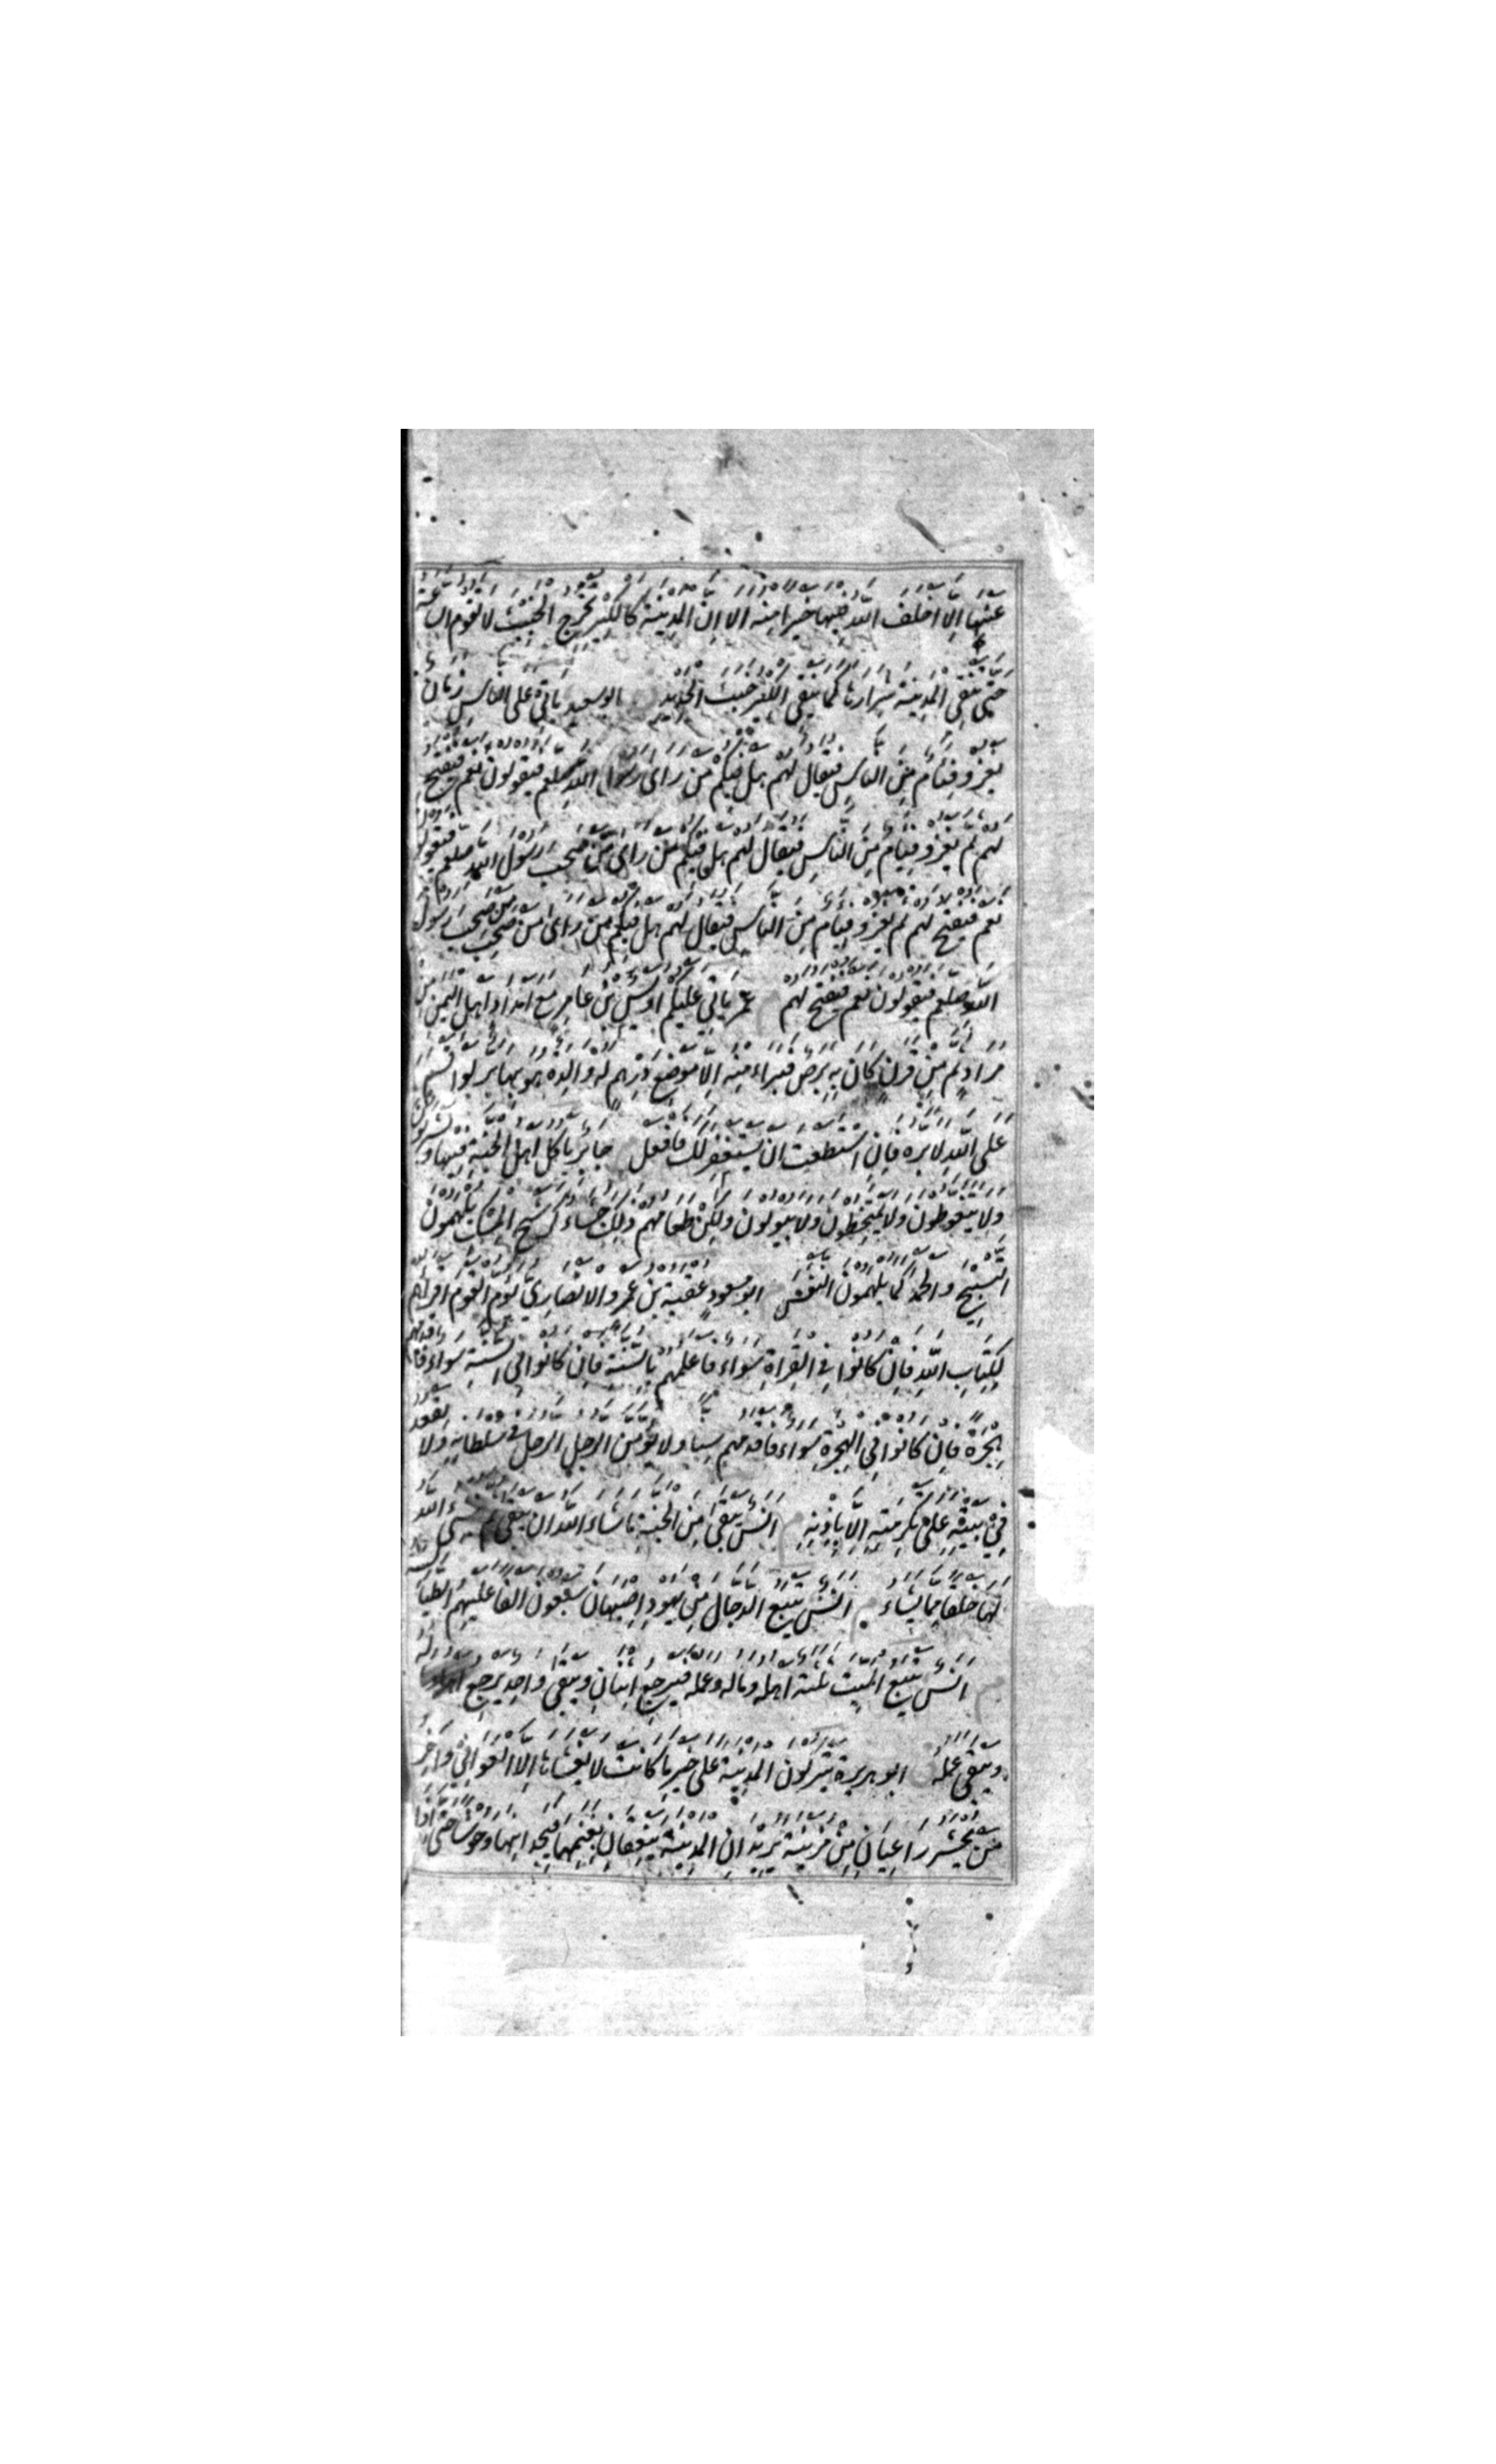 عنها الا اخلف الله فيها خيرا منه الا ان المدينة كالكير تخرج الخبيث لا تقوم الساعة
حتى تنفي المدينة شرارها كما ينفي الكير خبث الحديد ابو سعيد ياتي على الناس زمان
يغزو فئام من الناس فيقال لهم هل فيكم من راى رسول الله صلعم فيقولون نعم فيفتح
لهم ثم يغزو فيام من الناس فيقال لهم هل فيكم من راى من صحب رسول الله صلعم فيقولون
نعم فيفتح لهم ثم يغزو فيام من الناس فيقال لهم هل فيكم من راى من صحب من صحب رسول
الله صلعم فيقولون نعم فيفتح لهم م عمر ياتي عليكم اويس بن عامر مع امداد اهل اليمن من
مراد ثم من قرن كان به برص فبراء منه الا موضع درهم له والدة هو بها بر لو اقسم
على الله لابره فان استطعت ان يستغفر لك فافعل جابر ياكل اهل الجنة فيها ويشربون
ولا يتغوطون ولا يمتخطون ولا يبولون ولكن طعامهم ذلك جشاء كرشح المسك يلهمون
التسبيح والحمد كما يلهمون النفس ابو مسعود عقبة بن عمرو الانصاري يؤم القوم اقراهم
لكتاب الله فان كانوا في القراة سواء فاعلمهم بالسنة فان كانوا في السنة سواء فاقدمهم
هجرة فان كانوا في الهجرة سواء فاقدمهم سنا ولا يؤمن الرجل الرجل في سلطانه ولا يقعد
في بيته على تكرمته الا باذنه م انس يبقى من الجنة ما شاء الله ان يبقى ثم ينشئ الله
لها خلقا مما يشاء م انس يتبع الدجال من يهود اصبهان سبعون الفا عليهم الطيالسة
م انس يتبع الميت ثلثة اهله وماله وعمله فيرجع اثنان ويبقى واحد يرجع اهله وماله
ويبقى عمله ابو هريرة يتركون المدينة على خير ما كانت لا يغشاها الا العوافي واخر
من يحشر راعيان من مزينة يريدان المدينة ينعقان بغنمهما فيجدانها وحوشا حتى اذا